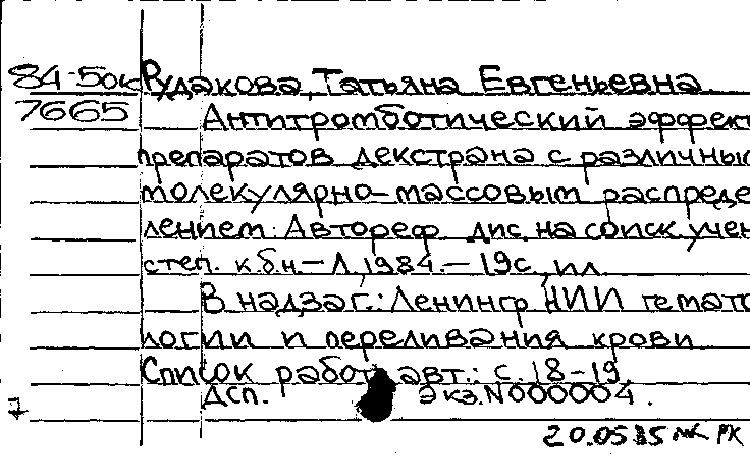 84-5ок Рудакова, Татьяна Евгеньевна.
7665 Антитромботический эффект
препаратов декстрана с различным
молекулярно-массовым распреде
лением: Автореф. дис. на соиск. учен
степ. к.б.н. - Л., 1984. - 19с., ил.
В надзаг.: Ленингр НИИ гемато
логии и переливания крови
Список работ авт.: с. 18-19.
Дсп. Экз. N000004.
20.05.85 РК